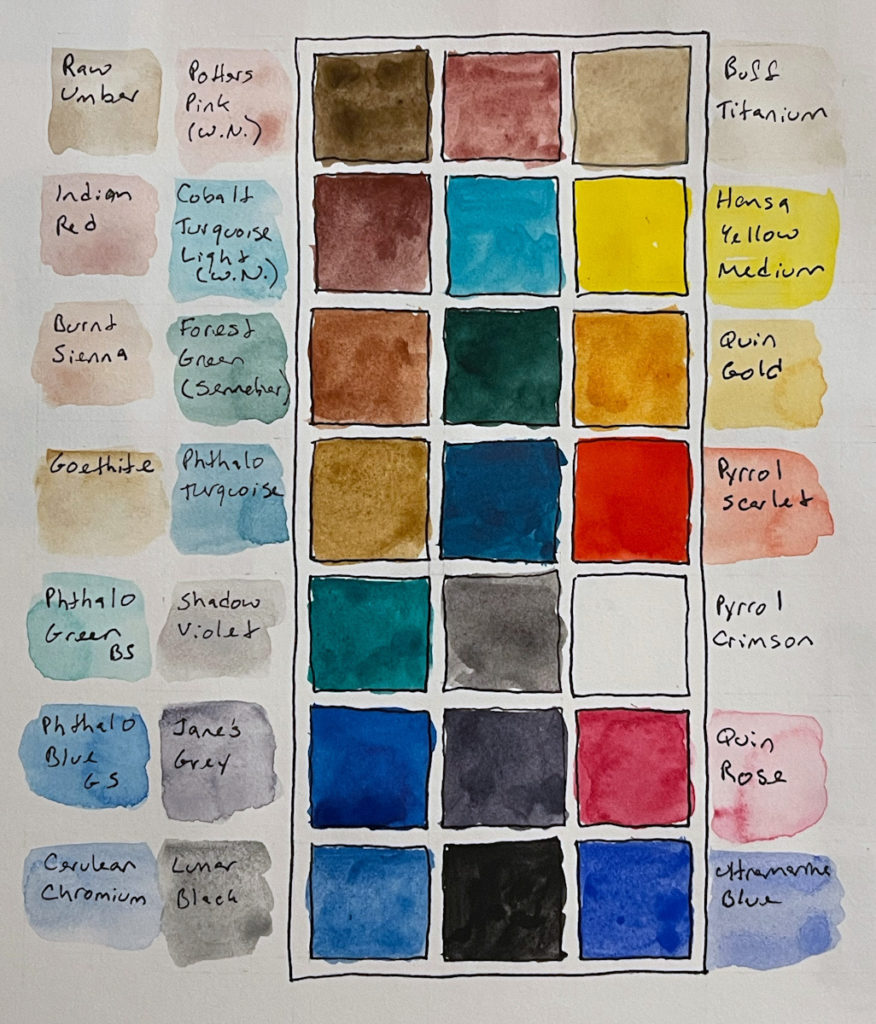 Raw
Umber
Potters
Pink
(W.N.)
Buff
Titanium
Indian
Red
Cobalt
Turquoise
Light
(W.N.)
Hansa
Yellow
Medium
Burnt
Sienna
Forest
Green
(Sennelier)
Quin
Gold
Goethite
Phthalo
Turquoise
Pyrrol
Scarlet
Phthalo
Green
BS
Shadow
Violet
Pyrrol
Crimson
Phthalo
Blue
GS
Jane's
Grey
Quin
Rose
Cerulean
Chromium
Lunar
Black
Ultramarine
Blue